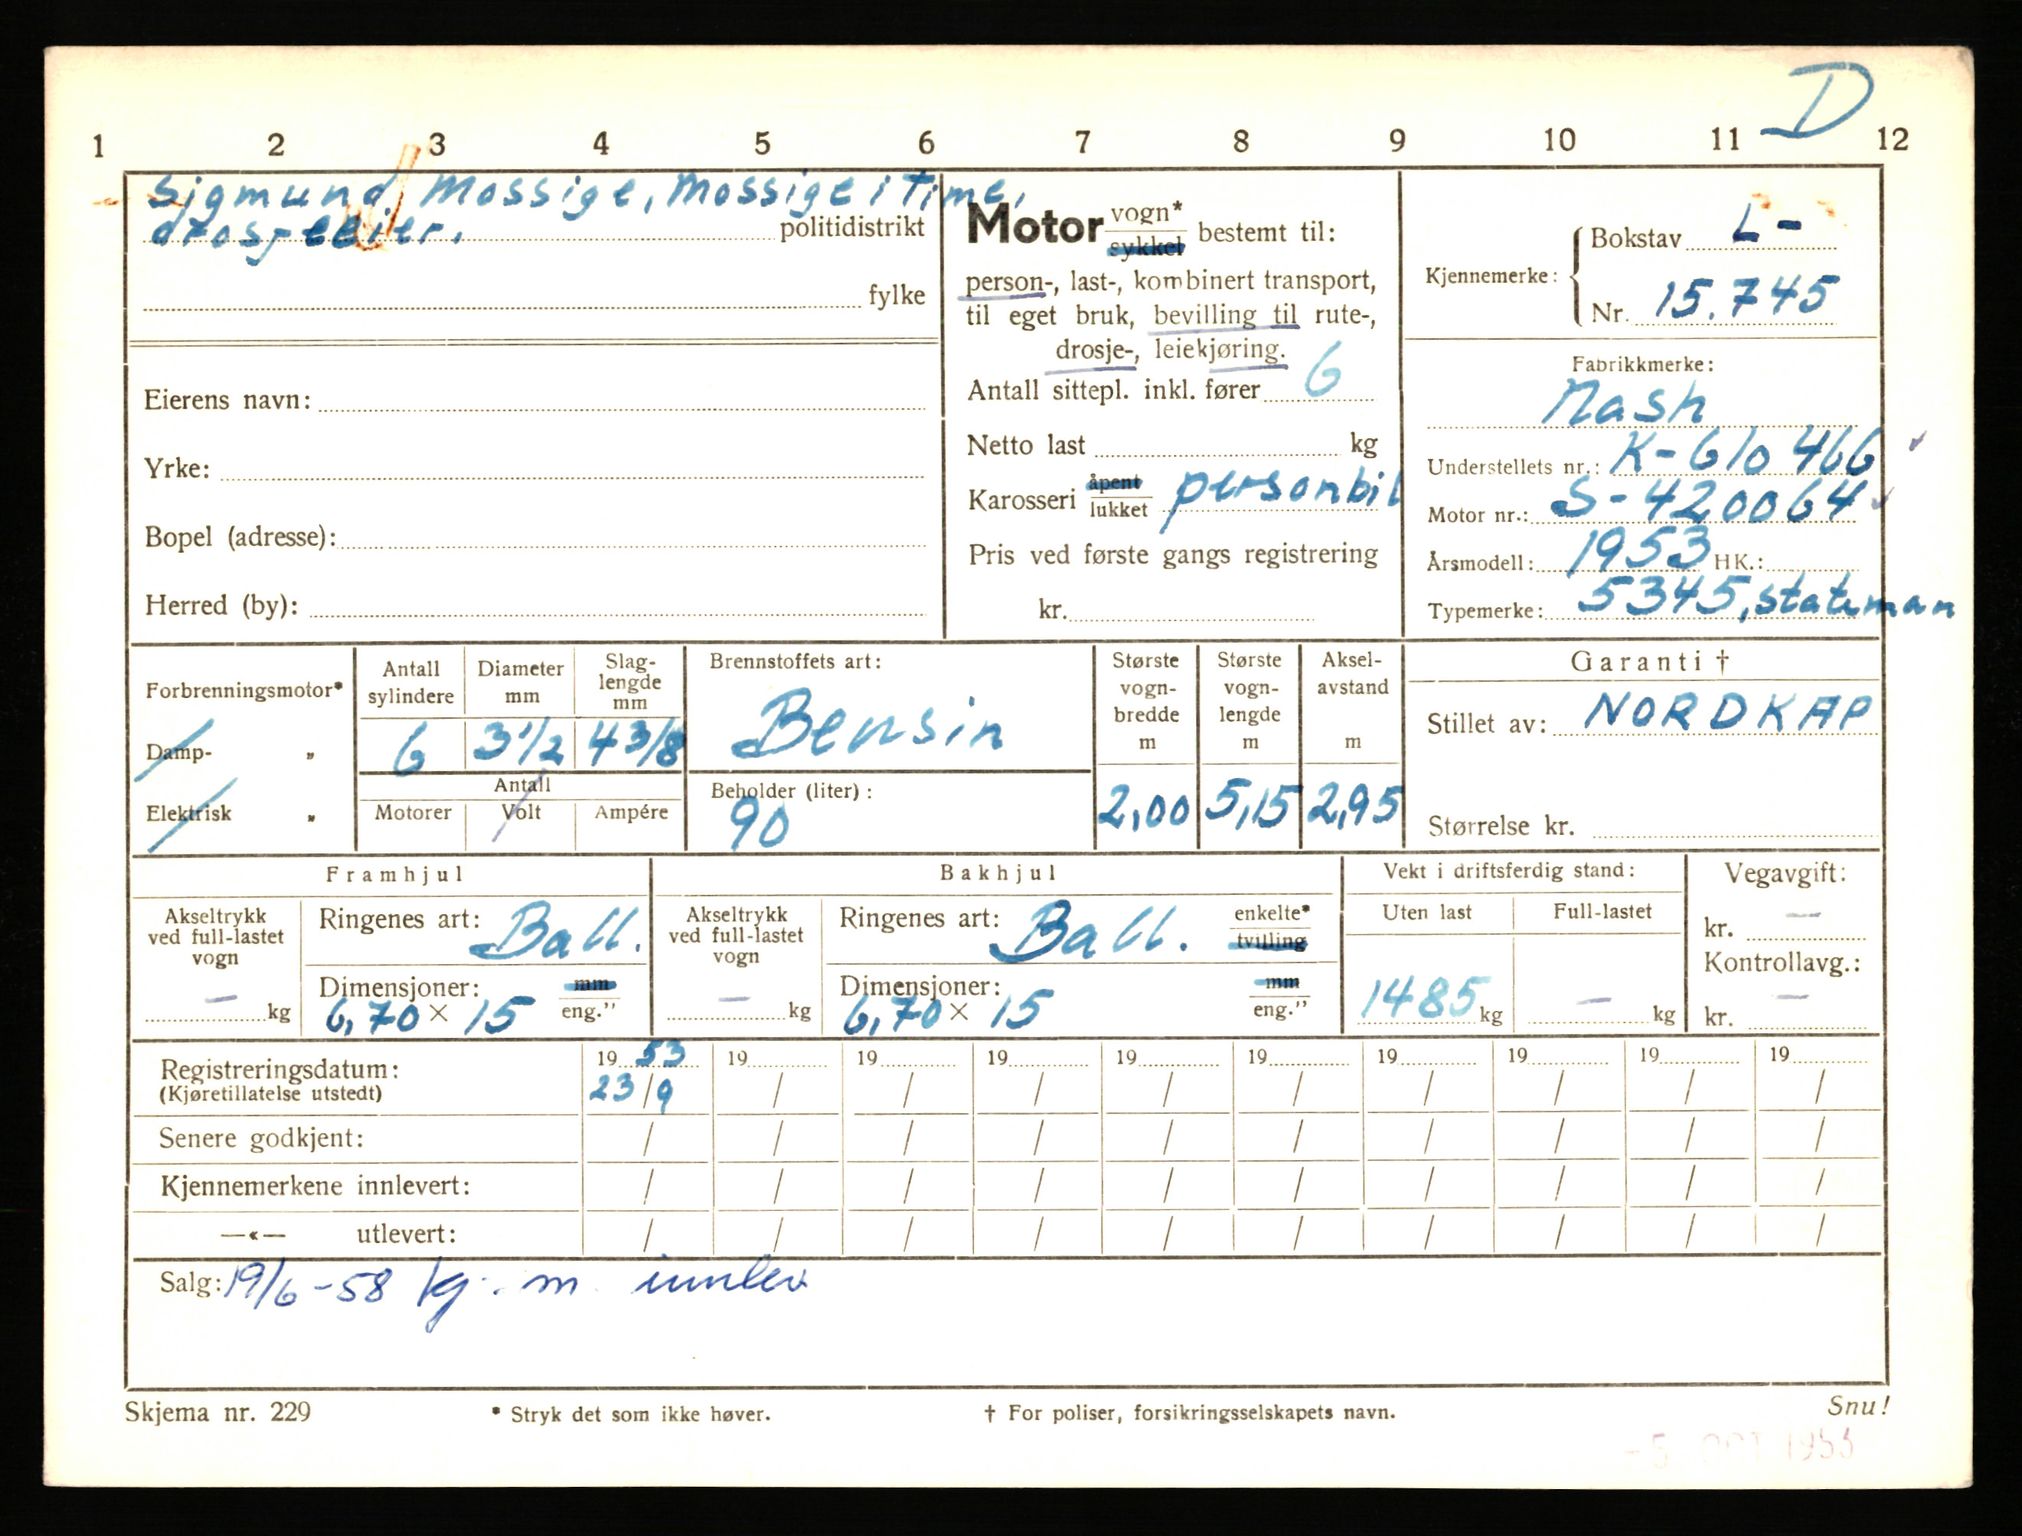 D
1 2 3 4 5 6 7 8 9 10 11 12
Sigmund Mossige, Mossige i Time,
drosjeeier. politidistrikt
fylke
Eierens navn:
Yrke:
Bopel (adresse):
Herred (by):
Motor vogn*
sykkel bestemt til:
person-, last-, kombinert transport,
til eget bruk, bevilling til rute-,
drosje-, leiekjøring.
Antall sittepl. inkl. fører 6
Netto last kg
Karosseri åpent
lukket personbil
Pris ved første gangs registrering
kr.
Kjennemerke: Bokstav L-
Nr. 15.745
Fabrikkmerke:
Nash
Understellets nr.: K-610466
Motor nr.: S-420064
Årsmodell: 1953 HK.:
Typemerke: 5345, statsman
Forbrenningsmotor*
Damp- „
Elektrisk „
Antall sylindere Diameter mm Slag-lengde mm
6 3 1/2 4 3/8
Antall
Motorer Volt Ampére
Brennstoffets art:
Bensin
Beholder (liter):
90
Største vogn-bredde m Største vogn-lengde m Aksel-avstand m
2,00 5,15 2,95
Garanti †
Stillet av: NORDKAP
Størrelse kr.
Framhjul
Akseltrykk
ved full-lastet
vogn
– kg
Ringenes art: Ball.
Dimensjoner: mm
6,70 × 15 eng.”
Bakhjul
Akseltrykk
ved full-lastet
vogn
– kg
Ringenes art: Ball. enkelte*
tvilling
Dimensjoner: mm
6,70 × 15 eng.”
Vekt i driftsferdig stand:
Uten last Full-lastet
1485 kg – kg
Vegavgift:
kr. –
Kontrollavg.:
kr. –
Registreringsdatum: 19 53 19 19 19 19 19 19 19 19 19
(Kjøretillatelse utstedt) 23/9 / / / / / / / / /
Senere godkjent: / / / / / / / / / /
Kjennemerkene innlevert: / / / / / / / / / /
—«— utlevert: / / / / / / / / / /
Salg: 19/6-58 kj. m. innlev
Skjema nr. 229 * Stryk det som ikke høver. † For poliser, forsikringsselskapets navn. Snu!
-5. OCT 1953